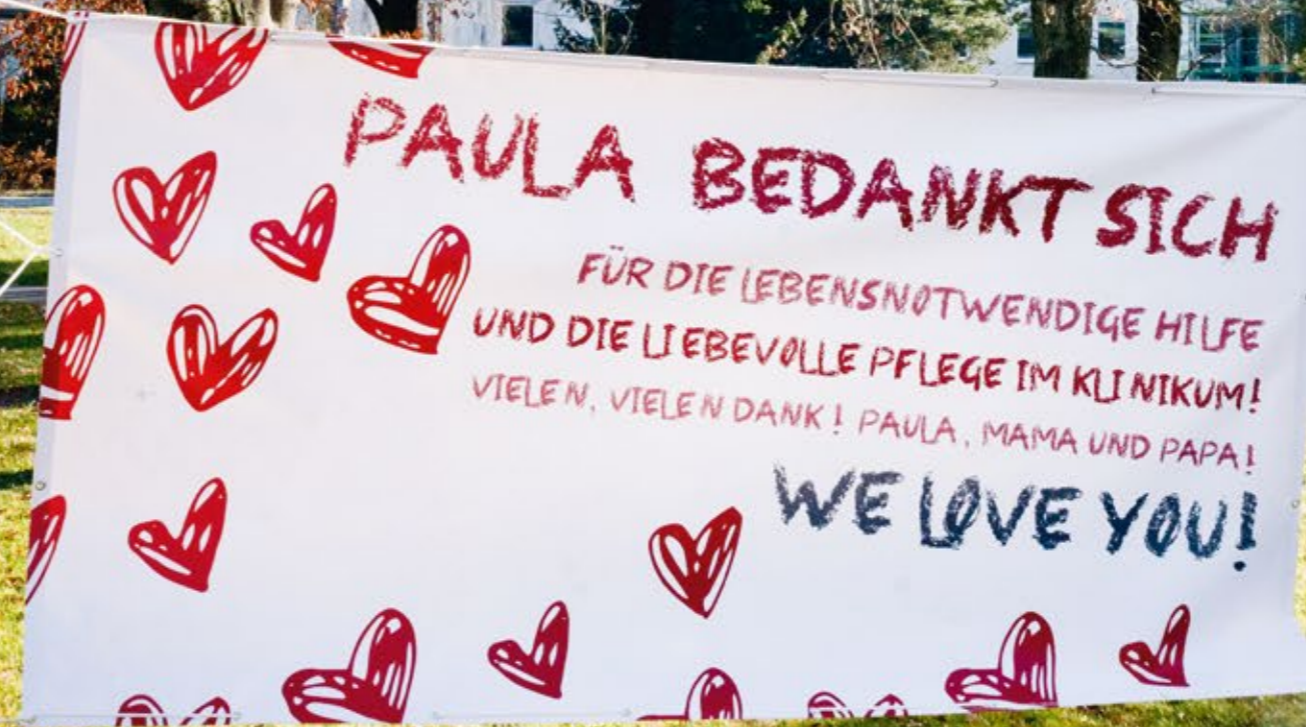 PAULA BEDANKT SICH
FÜR DIE LEBENSNOTWENDIGE HILFE
UND DIE LIEBEVOLLE PFLEGE IM KLINIKUM!
VIELEN, VIELEN DANK! PAULA, MAMA UND PAPA!
WE LOVE YOU!